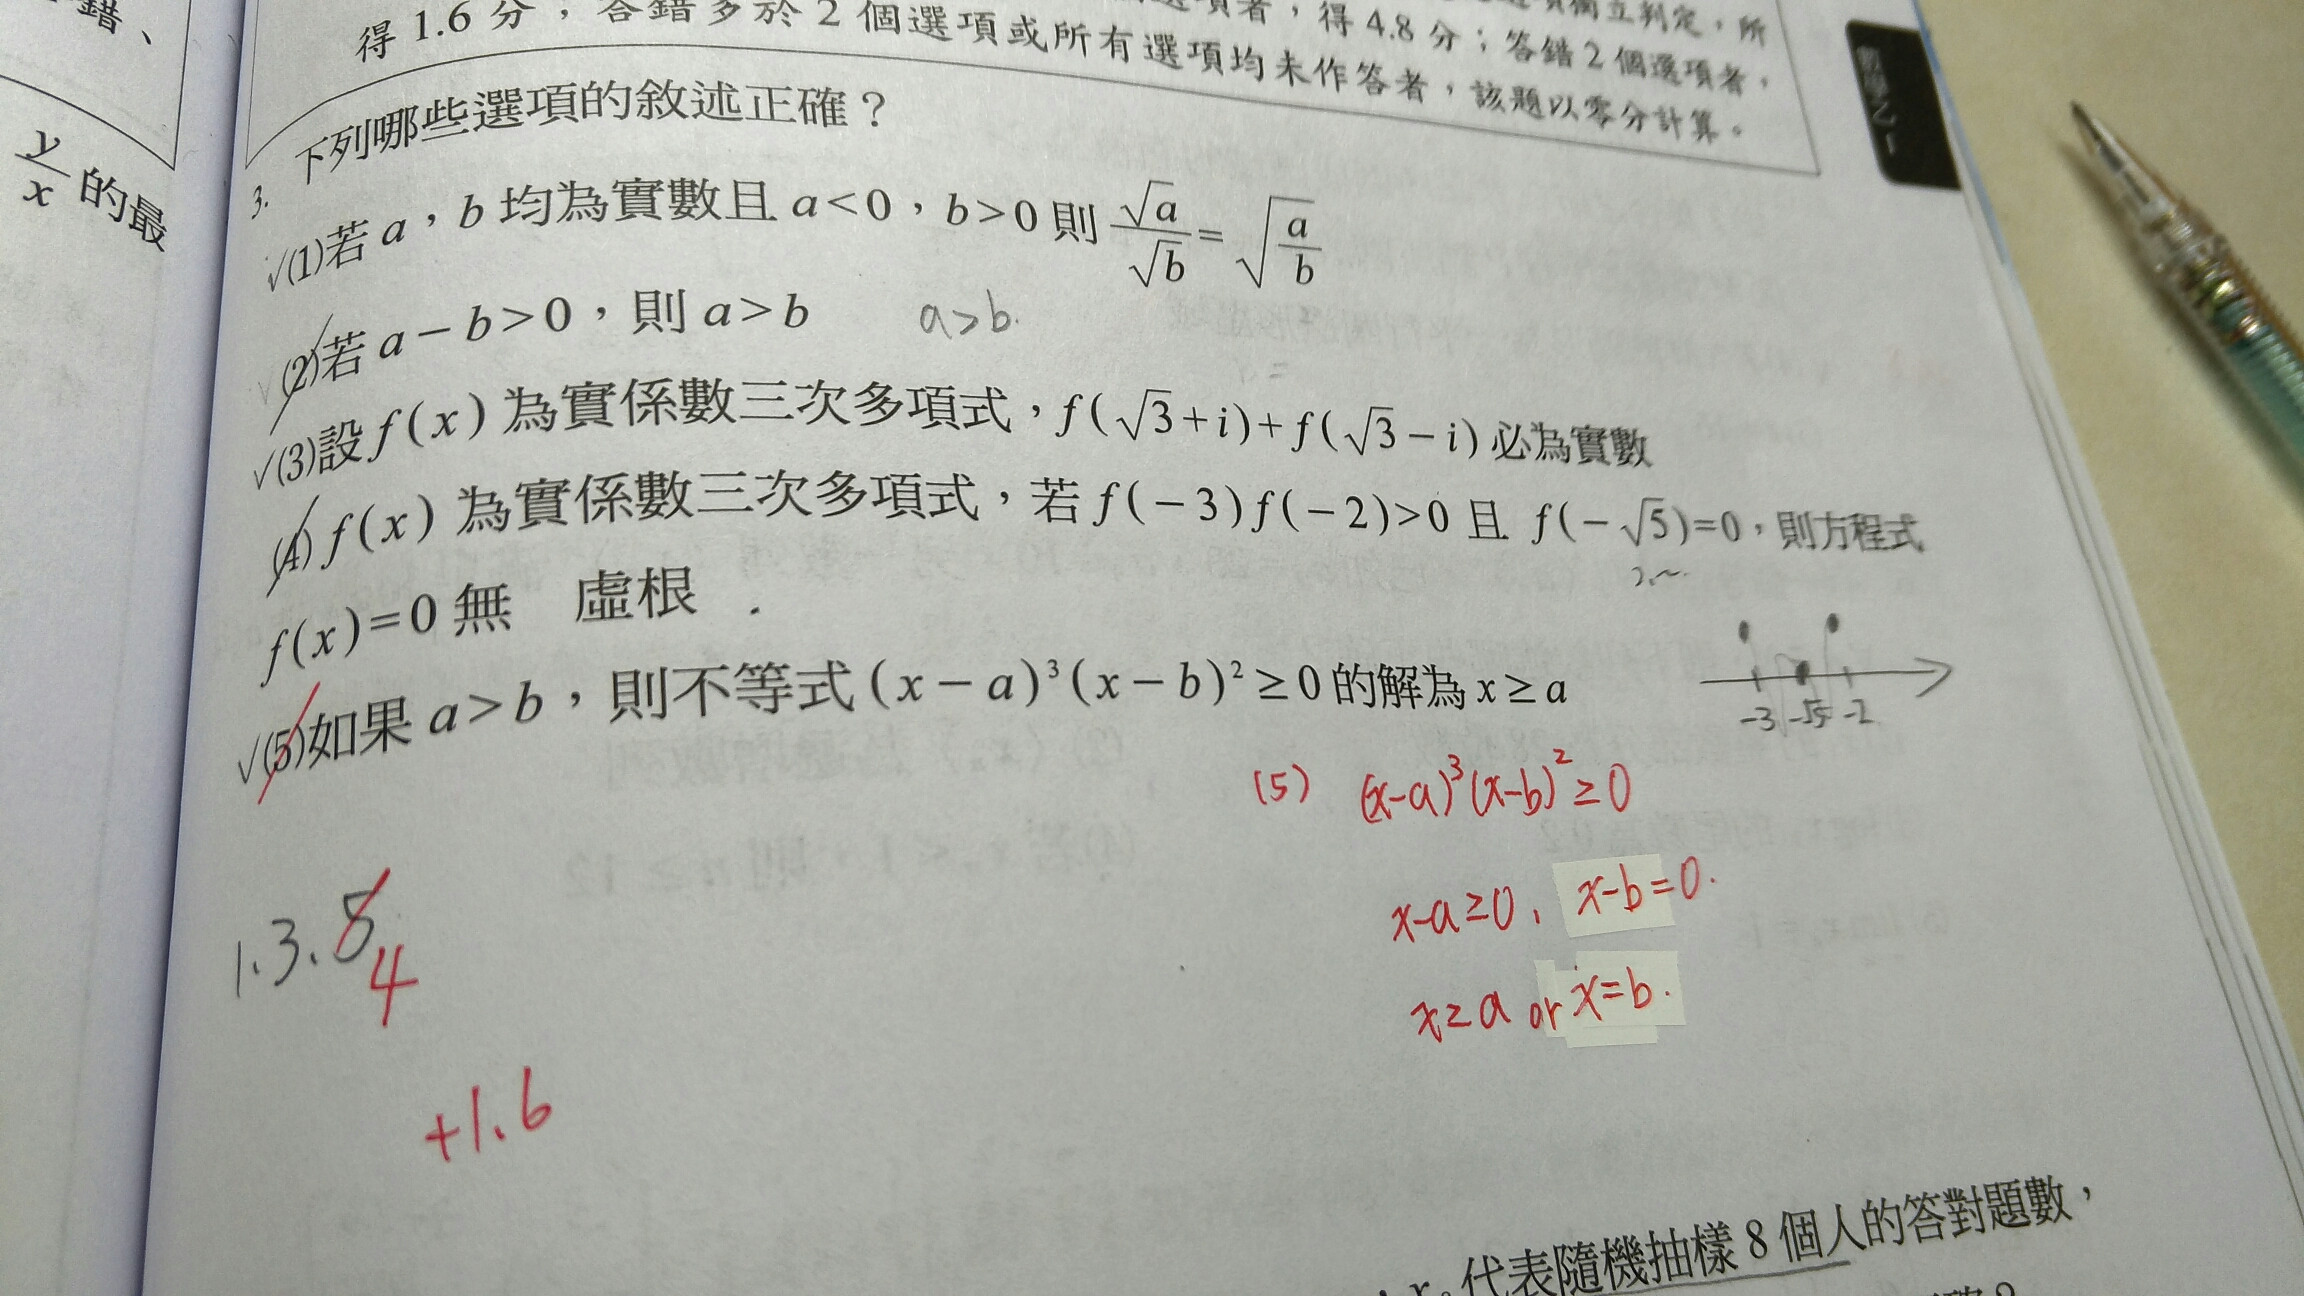 錯、
y/x 的最
選項獨立判定，所
得 4.8 分；答錯 2 個選項者，
得 1.6 分，答錯多於 2 個選項或所有選項均未作答者，該題以零分計算。
數學乙
3. 下列哪些選項的敘述正確？
√(1)若 a，b 均為實數且 a<0，b>0 則 √a/√b = √(a/b)
(2)若 a－b>0，則 a>b
a>b.
√(3)設 f(x) 為實係數三次多項式，f(√3+i)+f(√3－i) 必為實數
(4) f(x) 為實係數三次多項式，若 f(－3)f(－2)>0 且 f(－√5)=0，則方程式
f(x)=0 無 虛根
-3 -√5 -2
√(5)如果 a>b，則不等式 (x－a)³(x－b)²≥0 的解為 x≥a
(5) (x-a)³(x-b)²≥0
x-a≥0, x-b=0.
x≥a or x=b.
1.3.5
4
+1.6
代表隨機抽樣 8 個人的答對題數，